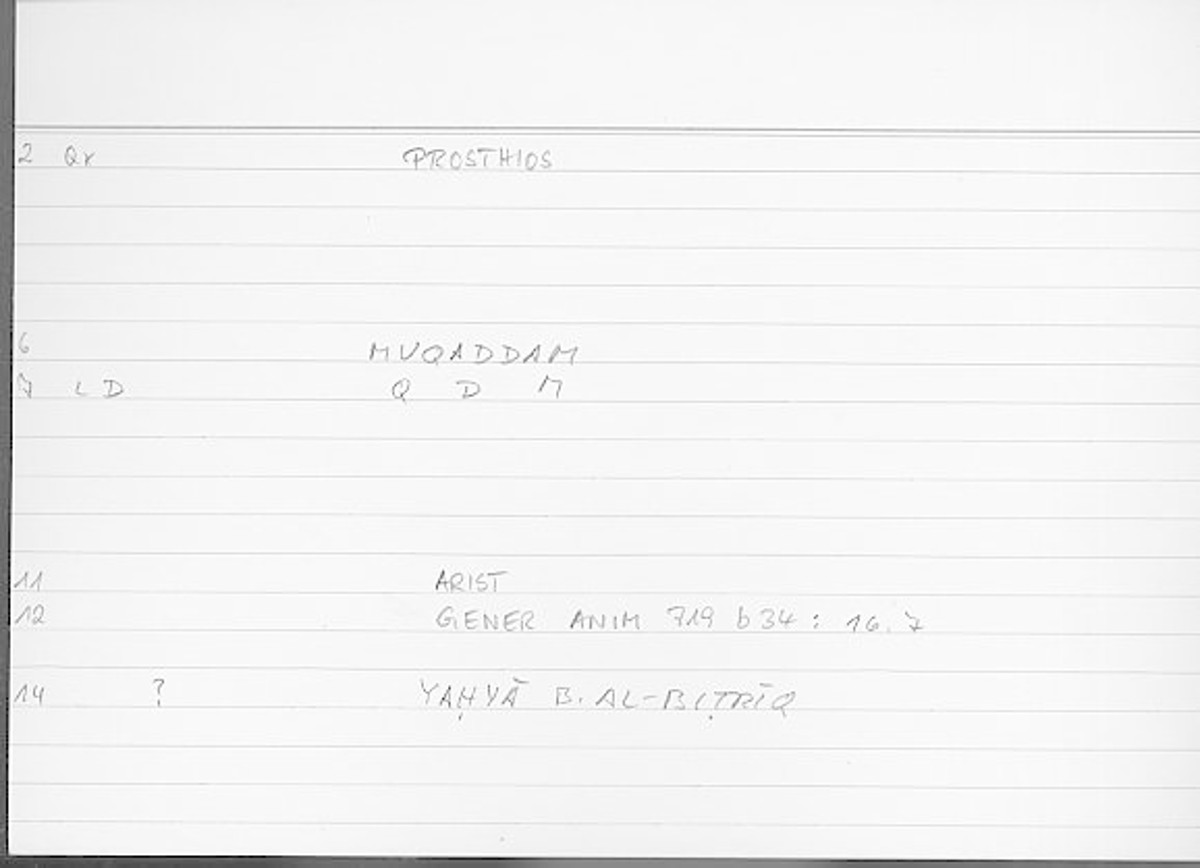 2 Qr PROSTHIOS
6 MUQADDAM
7 LD Q D M
11 ARIST
12 GENER ANIM 719 b 34 : 16.7
14 ? YAḤYĀ B. AL-BIṬRĪQ